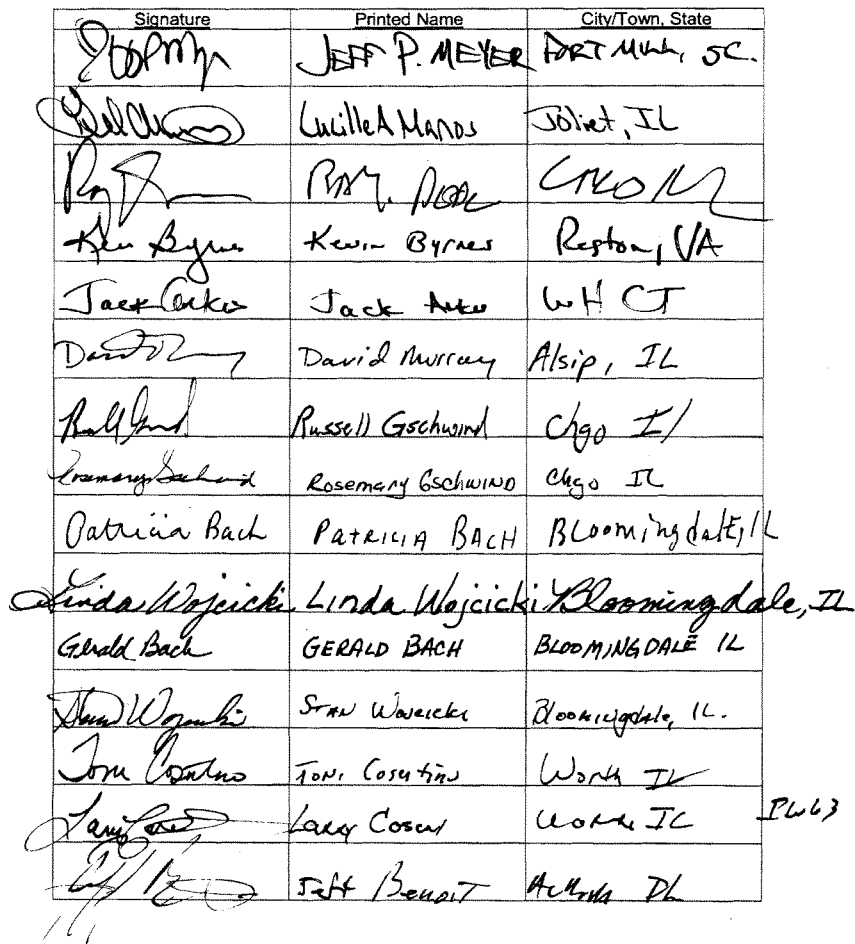 Signature Printed Name City/Town, State
JEFF P. MEYER FORT MILL, SC.
Lucille A Manos Joliet, IL
RAY.
Ken Byrnes Kevin Byrnes Reston, VA
Jack Jack WH CT
David Murray Alsip, IL
Russell Gschwind Chgo Il
Rosemary Gschwind Rosemary GSCHWIND Chgo IL
Patricia Bach PATRICIA BACH Bloomingdale, IL
Linda Wojcicki Linda Wojcicki Bloomingdale, IL
Gerald Bach GERALD BACH BLOOMINGDALE IL
Stan Wojcicki Bloomingdale, IL.
Toni Cosentino Toni Cosentino Worth IL
Larry Worth IL
Jeff Benoit